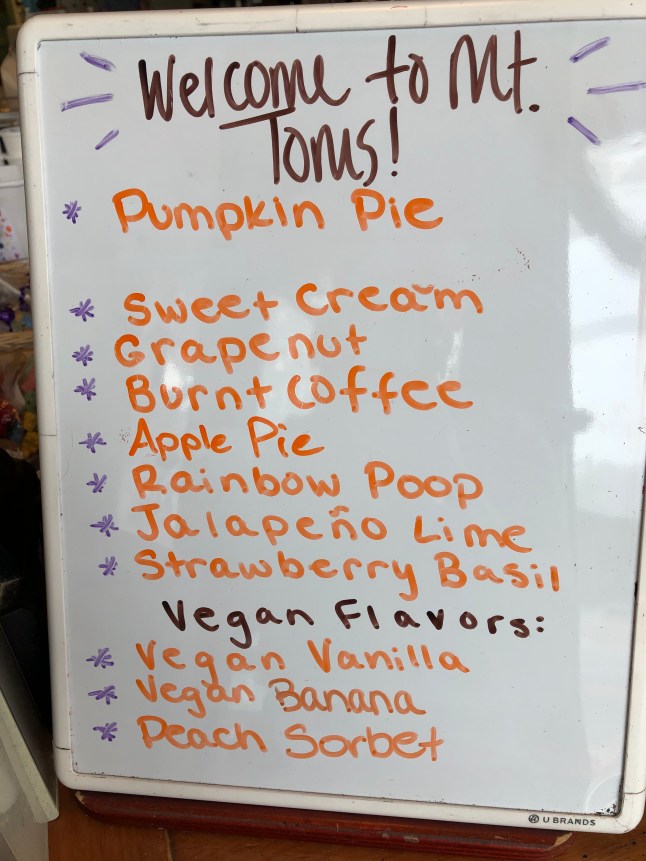 Welcome to Mt.
Toms!
* Pumpkin Pie
* Sweet Cream
* Grapenut
* Burnt Coffee
* Apple Pie
* Rainbow Poop
* Jalapeño Lime
* Strawberry Basil
Vegan Flavors:
* Vegan Vanilla
* Vegan Banana
* Peach Sorbet
U BRANDS